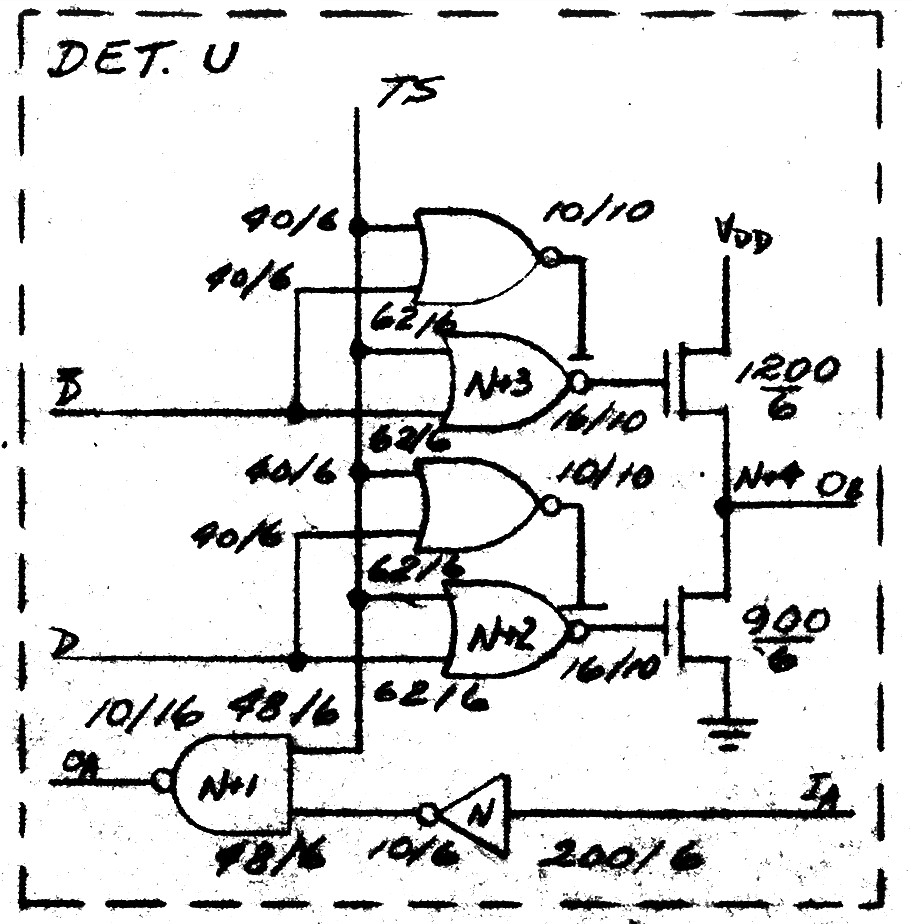 DET. U
TS
40/6
10/10
VDD
40/6
62/6
D̅
N+3
1200
6
62/6
16/10
40/6
10/10
N+4
OB
40/6
62/6
D
N+2
900
6
62/6
16/10
10/16
48/6
OA
N+1
N
IA
48/6
10/6
200/6